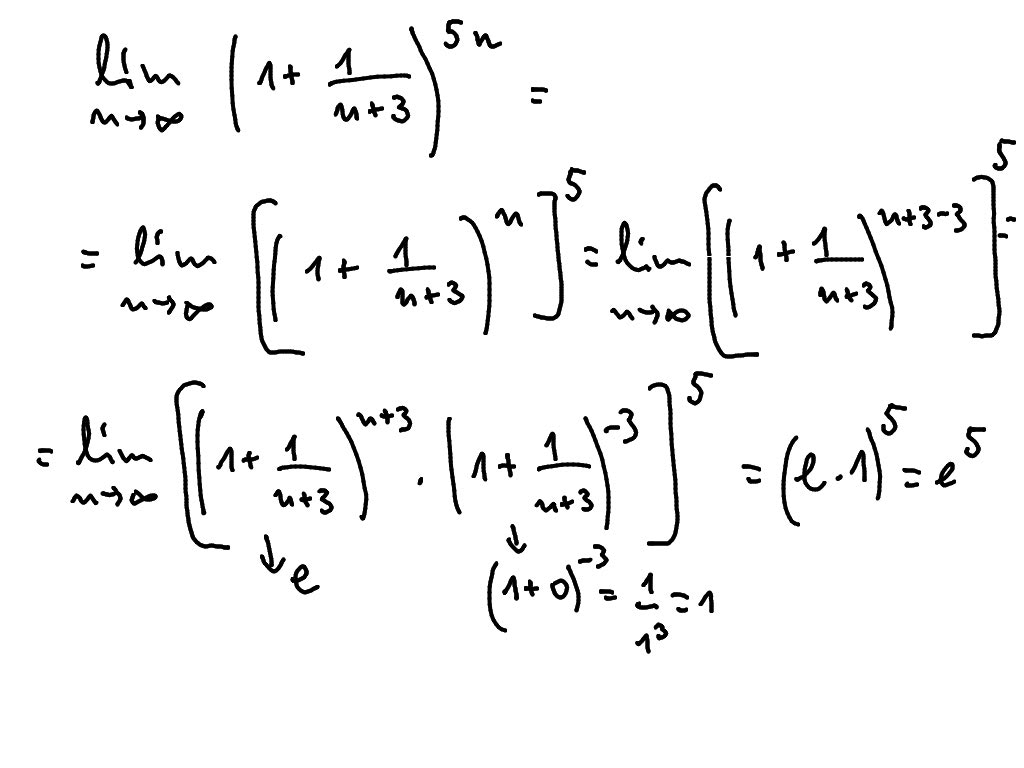 lim n→∞ (1 + 1/(n+3))^5n =
= lim n→∞ [(1 + 1/(n+3))^n]^5 = lim n→∞ [(1 + 1/(n+3))^(n+3-3)]^5 =
= lim n→∞ [(1 + 1/(n+3))^(n+3) · (1 + 1/(n+3))^-3]^5 = (e · 1)^5 = e^5
↓ e ↓ (1+0)^-3 = 1/1^3 = 1